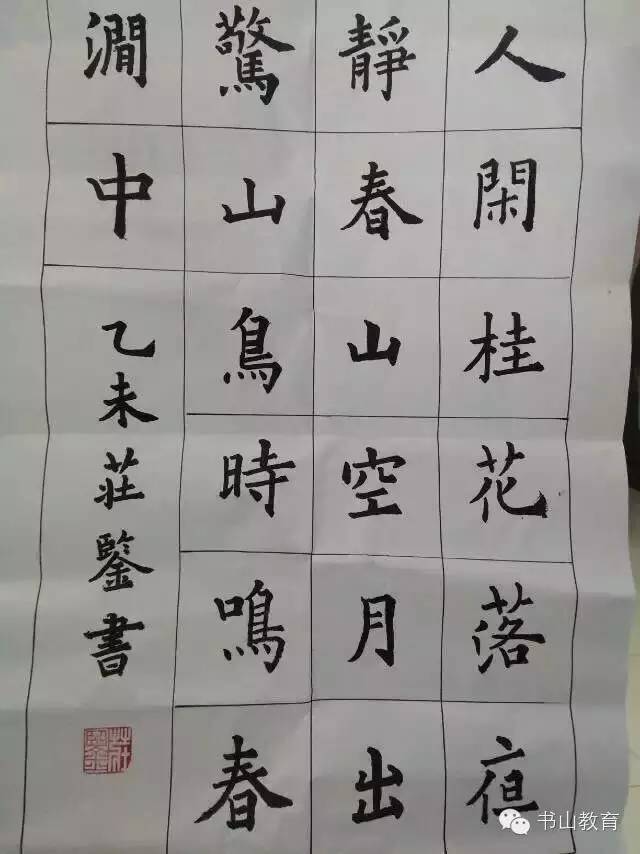 人閑桂花落亱
靜春山空月出
驚山鳥時鳴春
澗中
乙未莊鑒書
书山教育